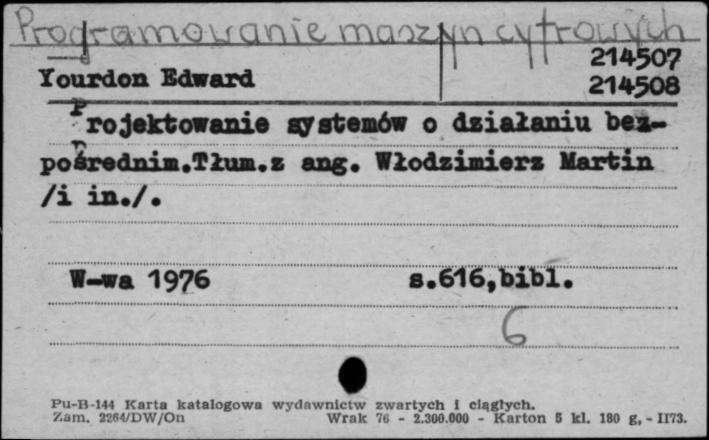 Programowanie maszyn cyfrowych
214507
Yourdon Edward
214508
Projektowanie systemów o działaniu bez-
pośrednim.Tłum.z ang. Włodzimierz Martin
/i in./.
W-wa 1976 s.616,bibl.
6
Pu-B-144 Karta katalogowa wydawnictw zwartych i ciągłych.
Zam. 2264/DW/On Wrak 76 - 2.300.000 - Karton 5 kl. 180 g, - II73.